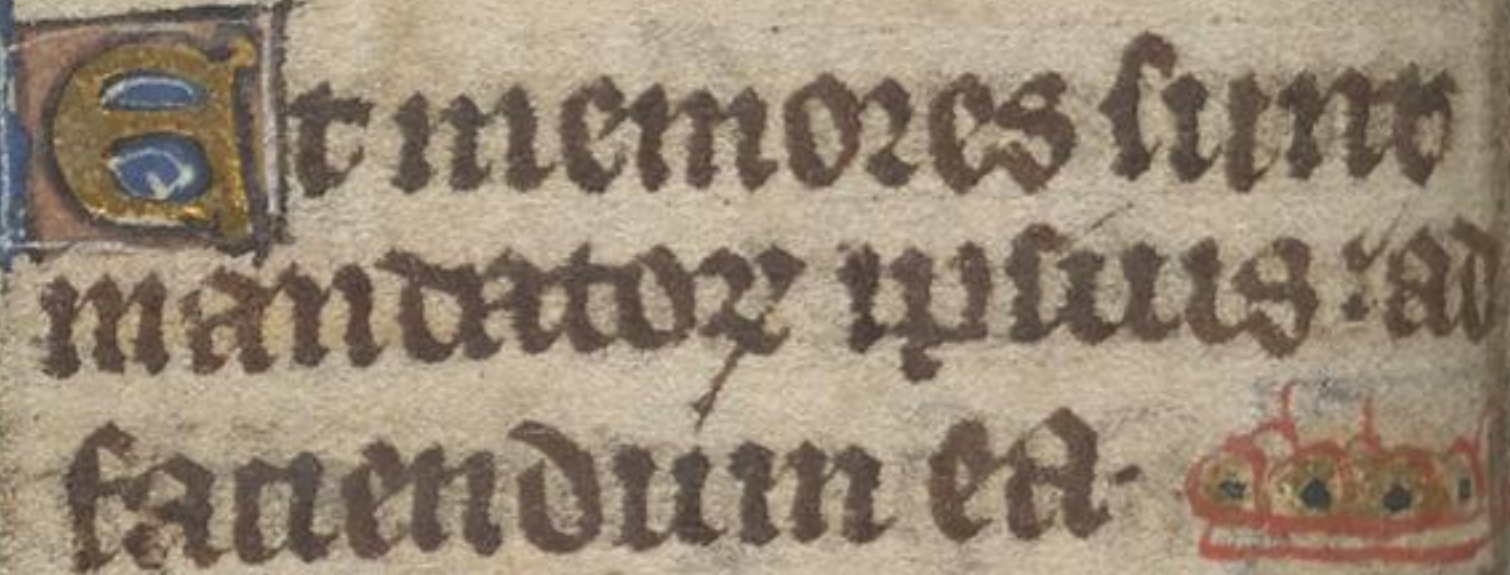 Et memores sunt
mandatoꝝ ipsius : ad
faciendum ea.